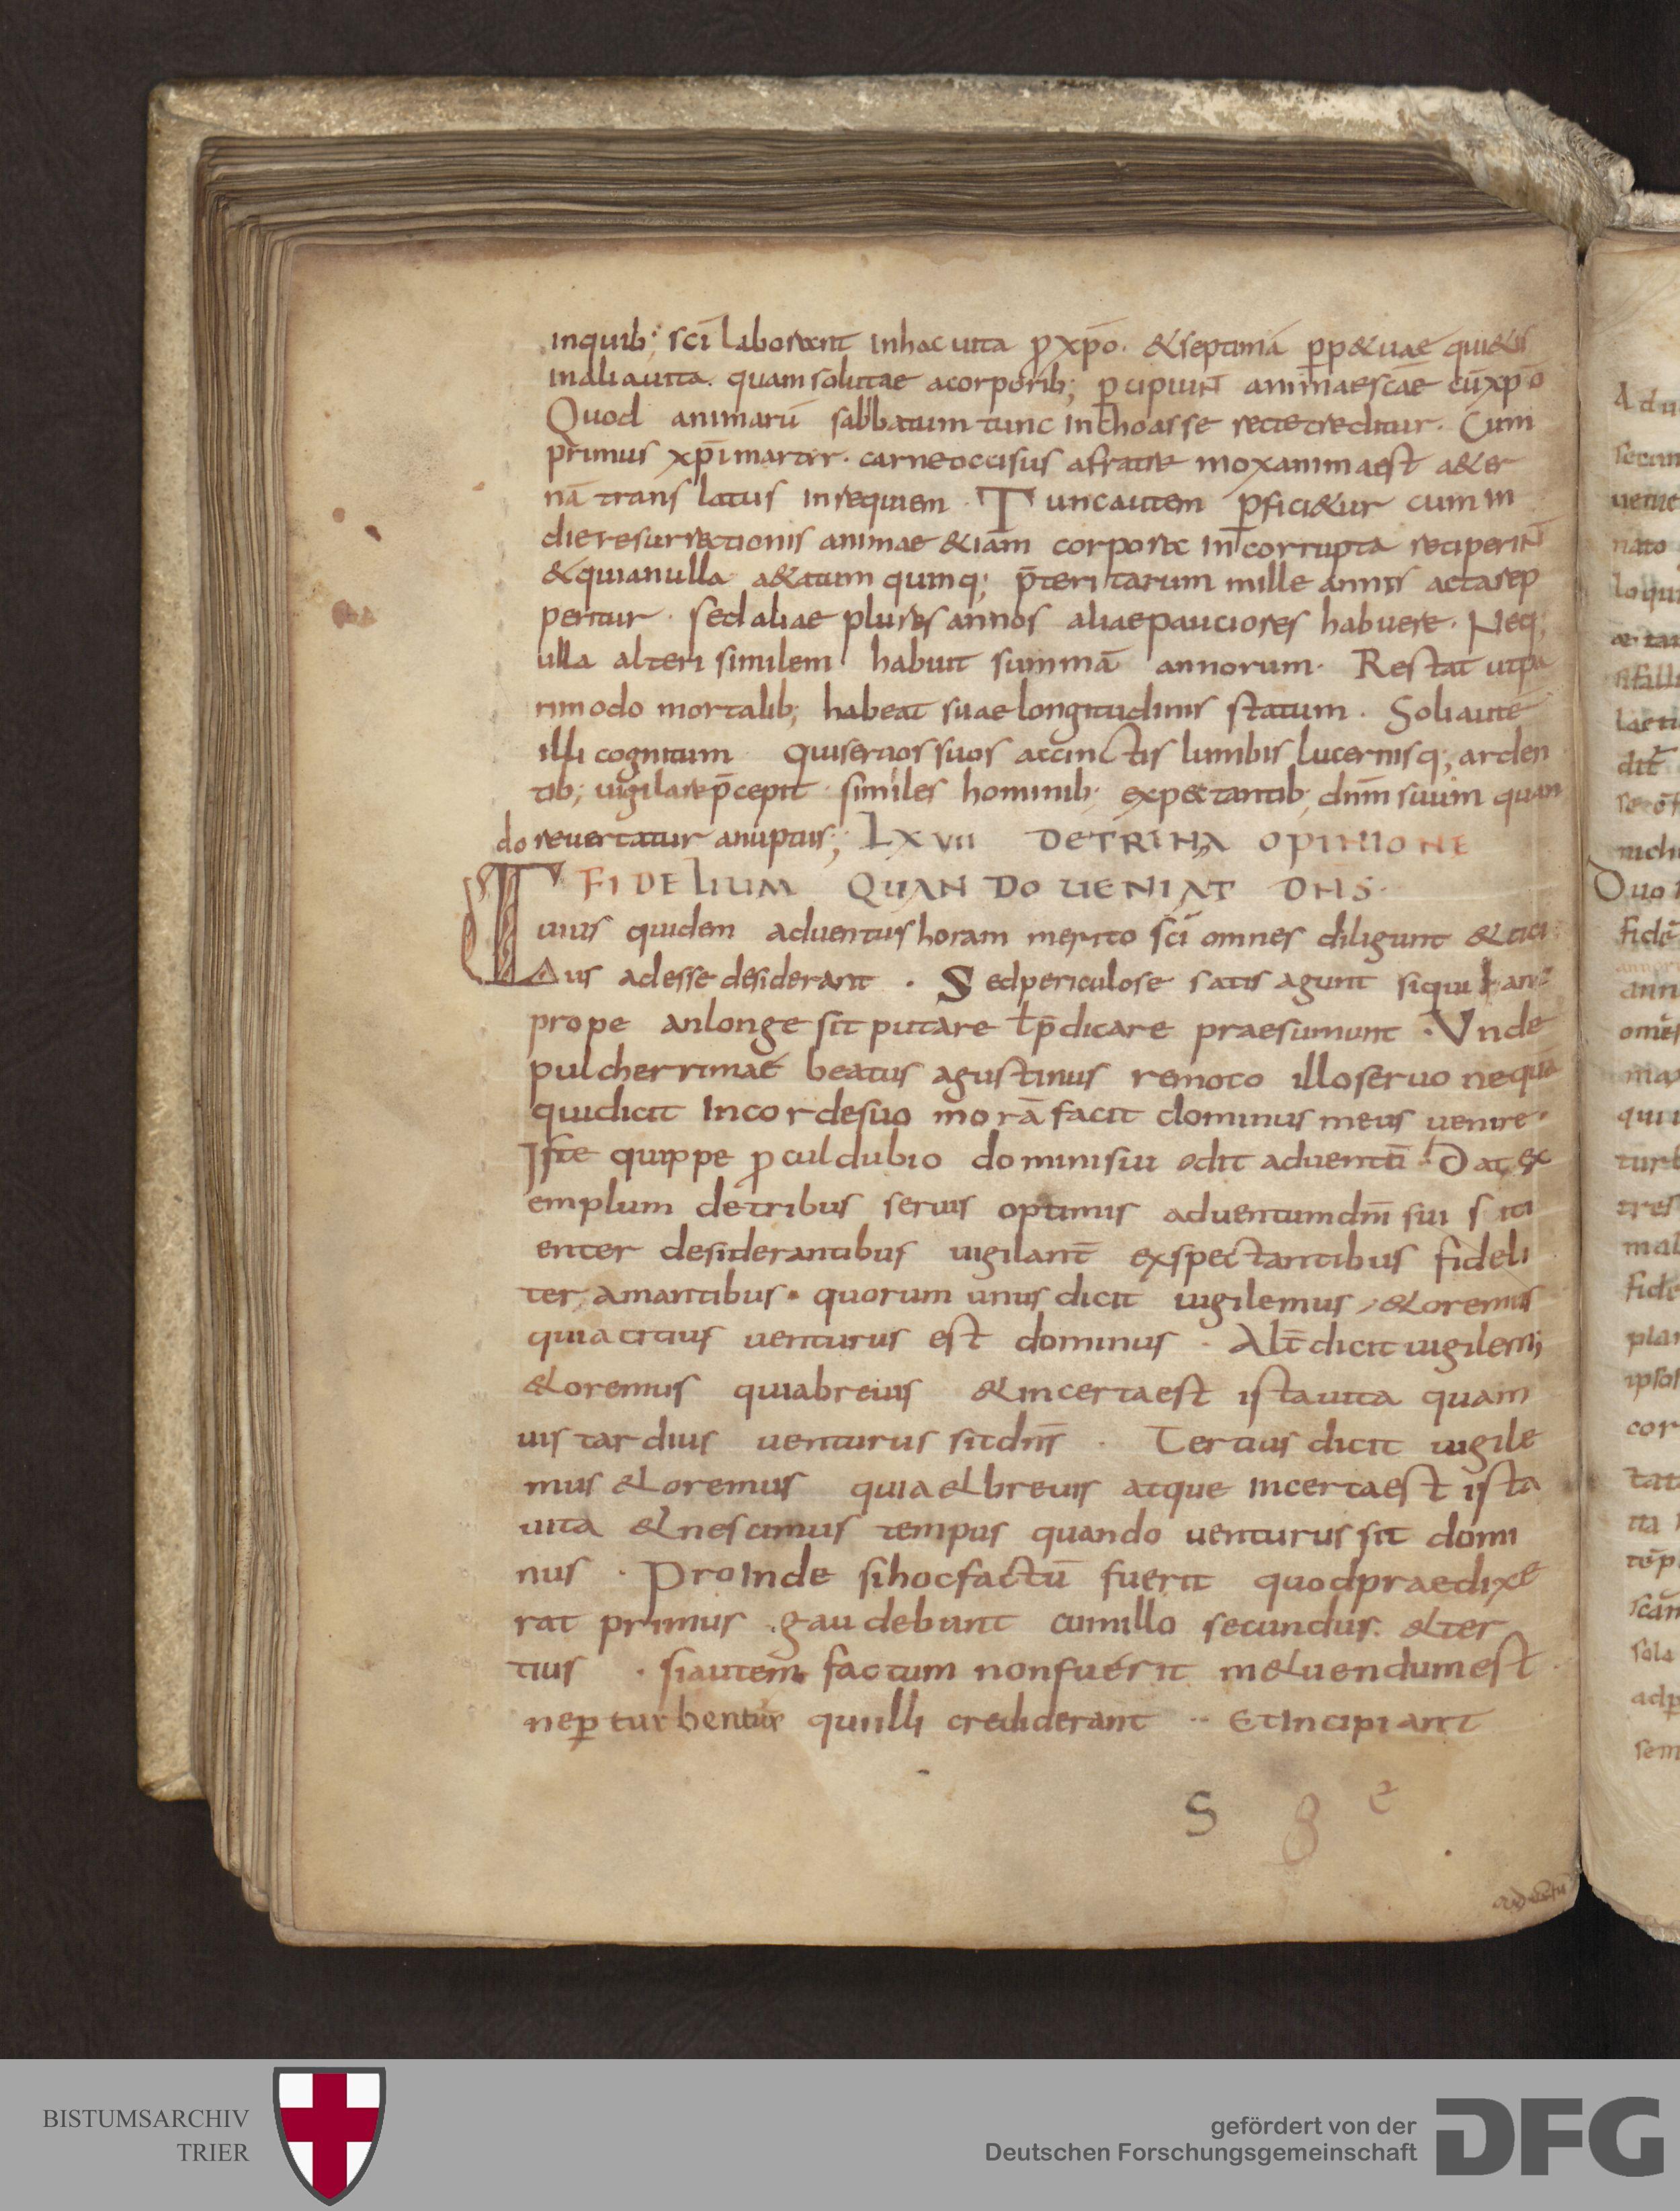 inquib; sc̄i laborant in hac uita ꝓ xp̄o. & septimā ꝑp&uae qui&is
in alia uita. quam solutae a corporib; ꝑcipiunt animae sc̄ae cū xp̄o
Quod animarū sabbatum tunc inchoasse recte creditur. Cum
primus xp̄i martir. carne occisus a fratre mox anima est a&er
nā translatus in requiem. Tunc autem ꝑfici&ur cum in
die resurrectionis animae &iam corpora incorrupta reciperint
& quia nulla a&atum quinq; p̄teritarum mille annis acta rep
peritur. sed aliae plures annos aliae pauciores habuere. Neq;
ulla alteri similem habuit summā annorum. Restat ut pa
ri modo mortalib; habeat suae longitudinis statum. Soli autē
illi cognitum qui seruos suos accinctis lumbis lucernisq; arden
tib; uigilare p̄cepit similes hominib; expectantib; dn̄m suum quan
do reuertatur a nuptiis; LXVII DE TRINA OPINIONE
FIDELIUM QUANDO UENIAT DN̄S.
Tuius quidem aduentus horam merito sc̄i omnes diligunt & citi
us adesse desiderant. Sed periculose satis agunt si qui hanc
prope an longe sit putare ł p̄dicare praesumunt. Unde
pulcherrimae beatus agustinus remoto illo seruo nequa
qui dicit in corde suo morā facit dominus meus uenire.
Iste quippe ꝓculdubio domini sui odit aduentū. Dat ex
emplum de tribus seruis optimis aduentum dn̄i sui siti
enter desiderantibus uigilant̄ exspectantibus fideli
ter amantibus. quorum unus dicit uigilemus, & oremus
quia citius uenturus est dominus. Alt̄ dicit uigilem;
& oremus quia breuis & incerta est ista uita quam
uis tardius uenturus sit dn̄s. Tertius dicit uigile
mus & oremus quia & breuis atque incerta est ista
uita & nescimus tempus quando uenturus sit domi
nus. Proinde si hoc factū fuerit quod praedixe
rat primus gaudebunt cum illo secundus. & ter
tius. si autem factum non fuerit m&uendum est
ne ꝑturbentur qui illi crediderant .. Et incipiant
S 8 e
BISTUMSARCHIV
TRIER
gefördert von der
Deutschen Forschungsgemeinschaft
DFG